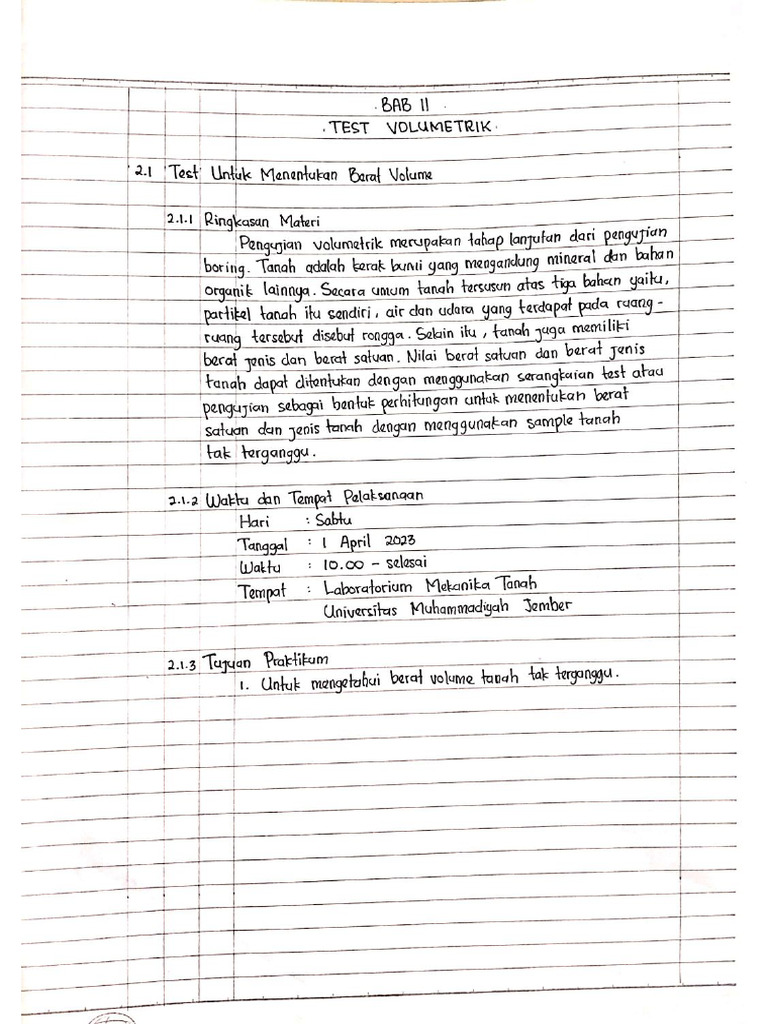 BAB II
TEST VOLUMETRIK
2.1 Test Untuk Menentukan Berat Volume
2.1.1 Ringkasan Materi
Pengujian volumetrik merupakan tahap lanjutan dari pengujian
boring. Tanah adalah kerak bumi yang mengandung mineral dan bahan
organik lainnya. Secara umum tanah tersusun atas tiga bahan yaitu,
partikel tanah itu sendiri, air dan udara yang terdapat pada ruang-
ruang tersebut disebut rongga. Selain itu, tanah juga memiliki
berat jenis dan berat satuan. Nilai berat satuan dan berat jenis
tanah dapat ditentukan dengan menggunakan serangkaian test atau
pengujian sebagai bentuk perhitungan untuk menentukan berat
satuan dan jenis tanah dengan menggunakan sample tanah
tak terganggu.
2.1.2 Waktu dan Tempat Pelaksanaan
Hari : Sabtu
Tanggal : 1 April 2023
Waktu : 10.00 - selesai
Tempat : Laboratorium Mekanika Tanah
Universitas Muhammadiyah Jember
2.1.3 Tujuan Praktikum
1. Untuk mengetahui berat volume tanah tak terganggu.